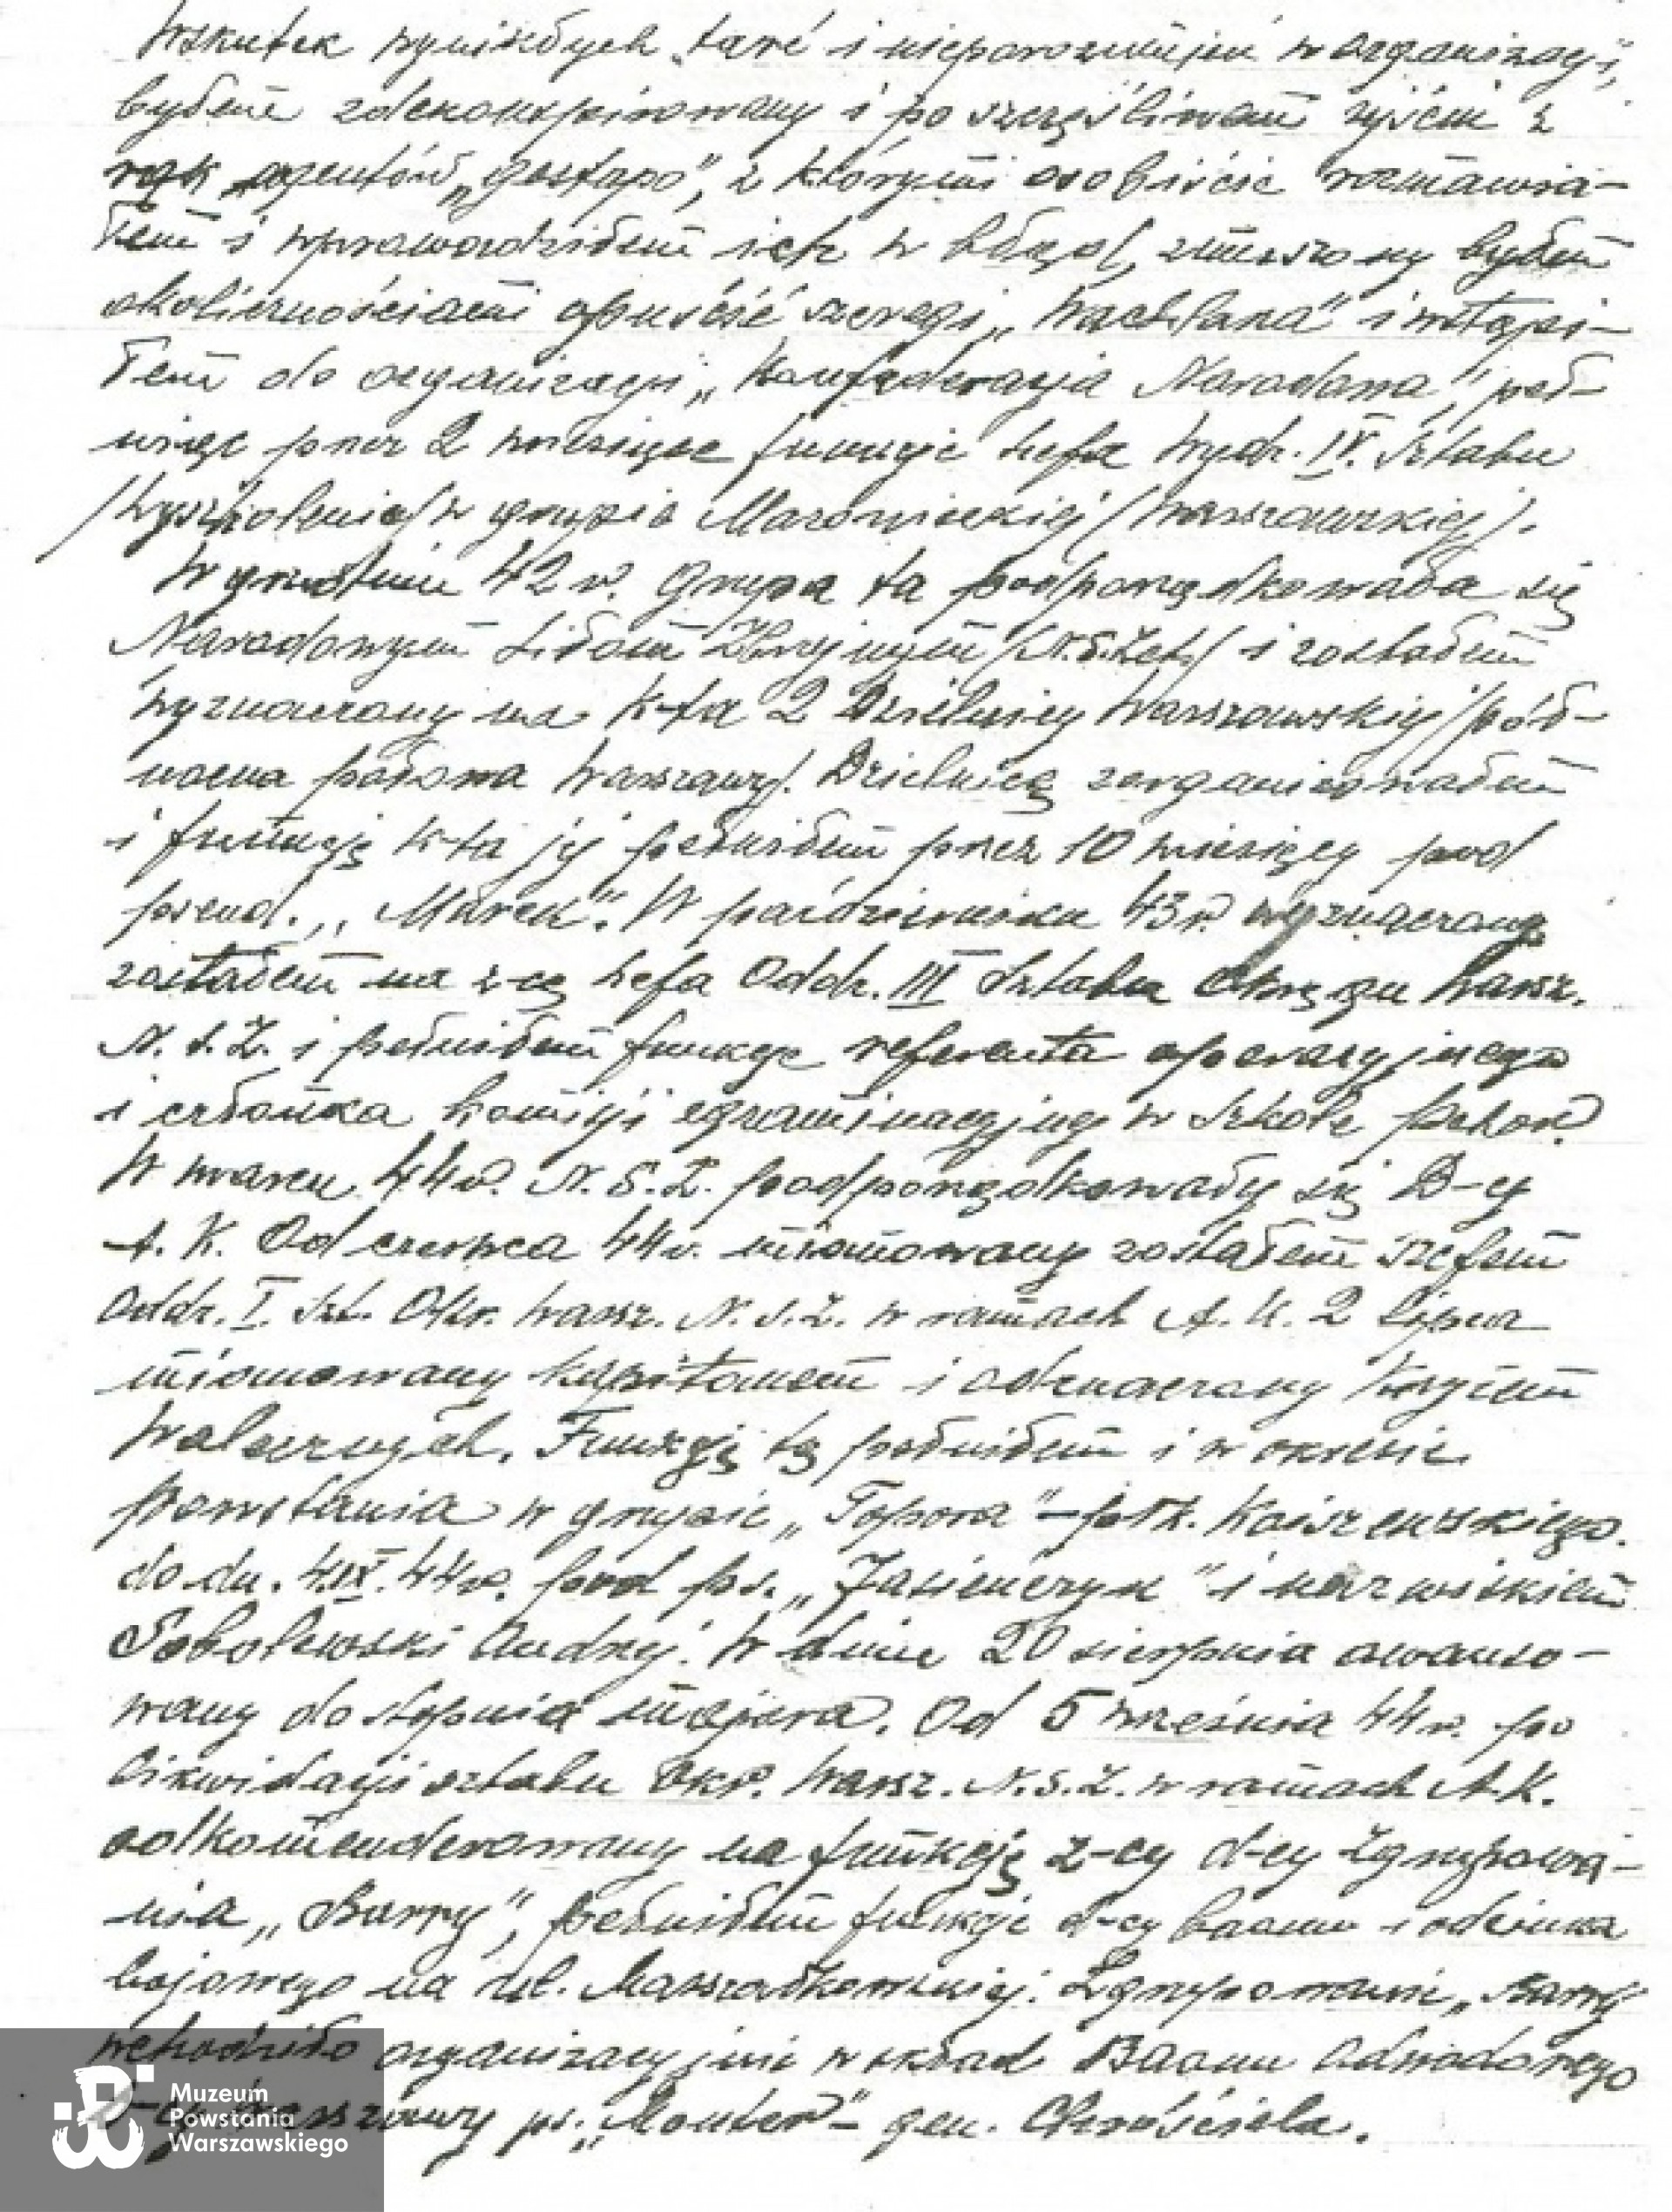 Wskutek wynikłych tarć i nieporozumień w organizacji,
byłem zdekonspirowany i po szczęśliwem wyjściu z
rąk agentów „gestapo", z którymi osobiście rozmawia-
łem i wprowadziłem ich w błąd, zmuszony byłem
okolicznościami opuścić szeregi „Wachlarza" i wstąpi-
łem do organizacji „Konfederacja Narodowa", peł-
niąc przez 2 miesiące funkcje szefa Wydz. IV. Sztabu
/Wyszkolenie/ w grupie Mazowieckiej /Warszawskiej/.
W grudniu 42 r. Grupa ta podporządkowała się
Narodowym Siłom Zbrojnym /N.S.Zet/ i zostałem
wyznaczony na K-ta 2 Dzielnicy Warszawskiej /pół-
nocna połowa Warszawy/. Dzielnicę zorganizowałem
i funkcję K-ta jej pełniłem przez 10 miesięcy pod
pseud. „Marek". W październiku 43 r. wyznaczony
zostałem na z-cę szefa Oddz. III Sztabu Okręgu Warsz.
N.S.Z. i pełniłem funkcje referenta operacyjnego
i członka komisji egzaminacyjnej w Szkole Pchor.
W marcu 44 r. N.S.Z. podporządkowały się D-cy
A.K. Od czerwca 44 r. mianowany zostałem szefem
Oddz. I. Szt. Okr. Warsz. N.S.Z. w ramach A.K. 2 lipca
mianowany kapitanem i odznaczony Krzyżem
Walecznych. Funkcję tę pełniłem i w okresie
Powstania w grupie „Topora" - płk. Koiszewskiego.
do dn. 4.IX.44 r. pod ps. „Jasieńczyk" i nazwiskiem
Sobolewski Andrzej. W dniu 20 sierpnia awanso-
wany do stopnia majora. Od 5 września 44 r. po
likwidacji sztabu Okr. Warsz. N.S.Z. w ramach A.K.
odkomenderowany na funkcję z-cy d-cy Zgrupowa-
nia „Barry", pełniłem funkcje d-cy baonu i odcinka
bojowego na ul. Marszałkowskiej. Zgrupowanie „Barry"
wchodziło organizacyjnie w skład Baonu Odwodowego
D-cy Warszawy ps. „Monter" - gen. Chruściela.
Muzeum
Powstania
Warszawskiego